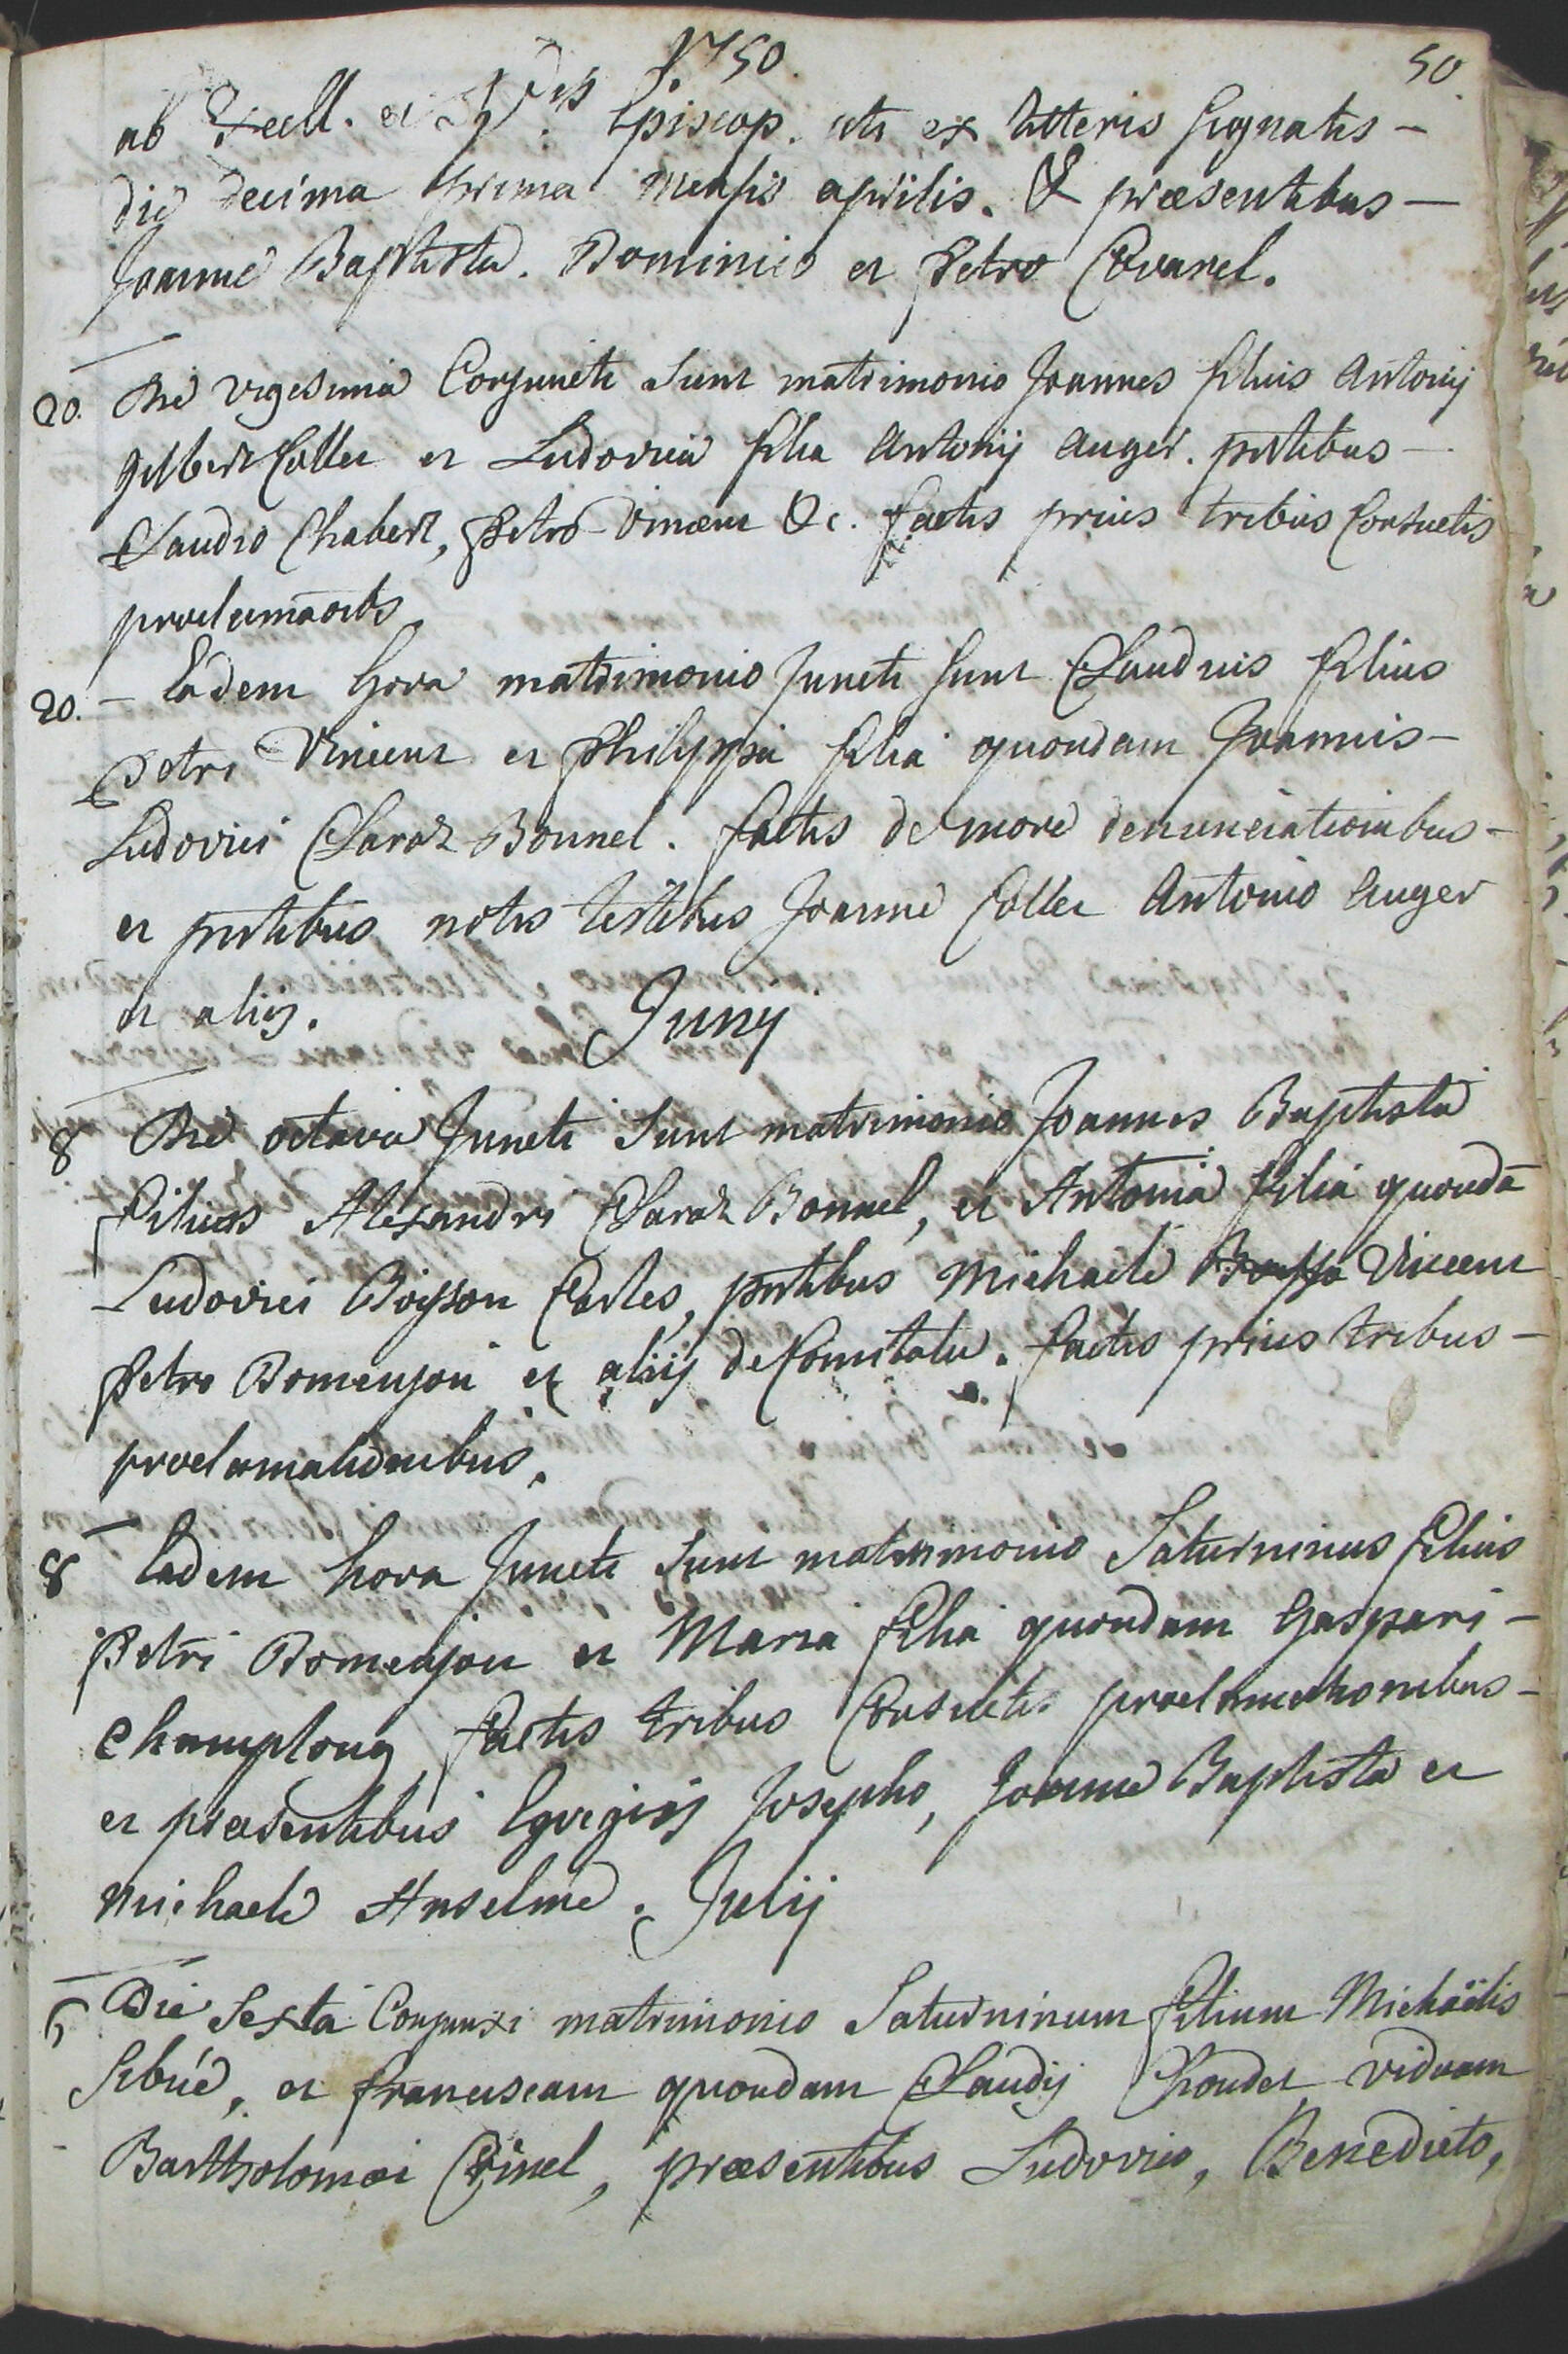 1750. 50.
ab Excell. et Episcop. uti ex litteris signatis -
die decima prima mensis aprilis. & præsentibus -
Joanne Baptista. Dominico et Petro Covarel.
20. Die vigesima Conjuncti sunt matrimonio Joannes filius Antonij
gilbert Collet et Ludovica filia Antonij auger. pntibus -
Claudio Chabert, Petro Vincent &c. factis prius tribus Consuetis
proclamaōibs
20. - Eadem hora matrimonio Juncti sunt Claudius filius
Petri Vincent et Philippa filia quondam Joannis -
Ludovici Claraz Bonnel. factis de more denunciationibus -
et pntibus notis testibus Joanne Collet Antonio Auger
et alijs. Junij
8 Die octava Juncti sunt matrimonio Joannes Baptista
filius Alexandri Claraz Bonnel, et Antonia filia quondā
Ludovici Boisson Cartes, pntibus Michaele Vincent
Petro Domenjon et alijs de Comitatu. factis prius tribus -
proclamationibus.
8 Eadem hora Juncti sunt matrimonio Saturninus filius
Petri Domenjon et Maria filia quondam Gaspari -
Champlong factis tribus Consuetis proclamationibus -
et præsentibus Egregijs Josepho, Joanne Baptista et
Michaele Anselme. Julij
6 Die Sexta Conjunxi matrimonio Saturninum filium Michaëlis
Sibué, et franciscam quondam Claudij Choudet viduam
Bartholomæi Crinel, præsentibus Ludovico, Benedicto,